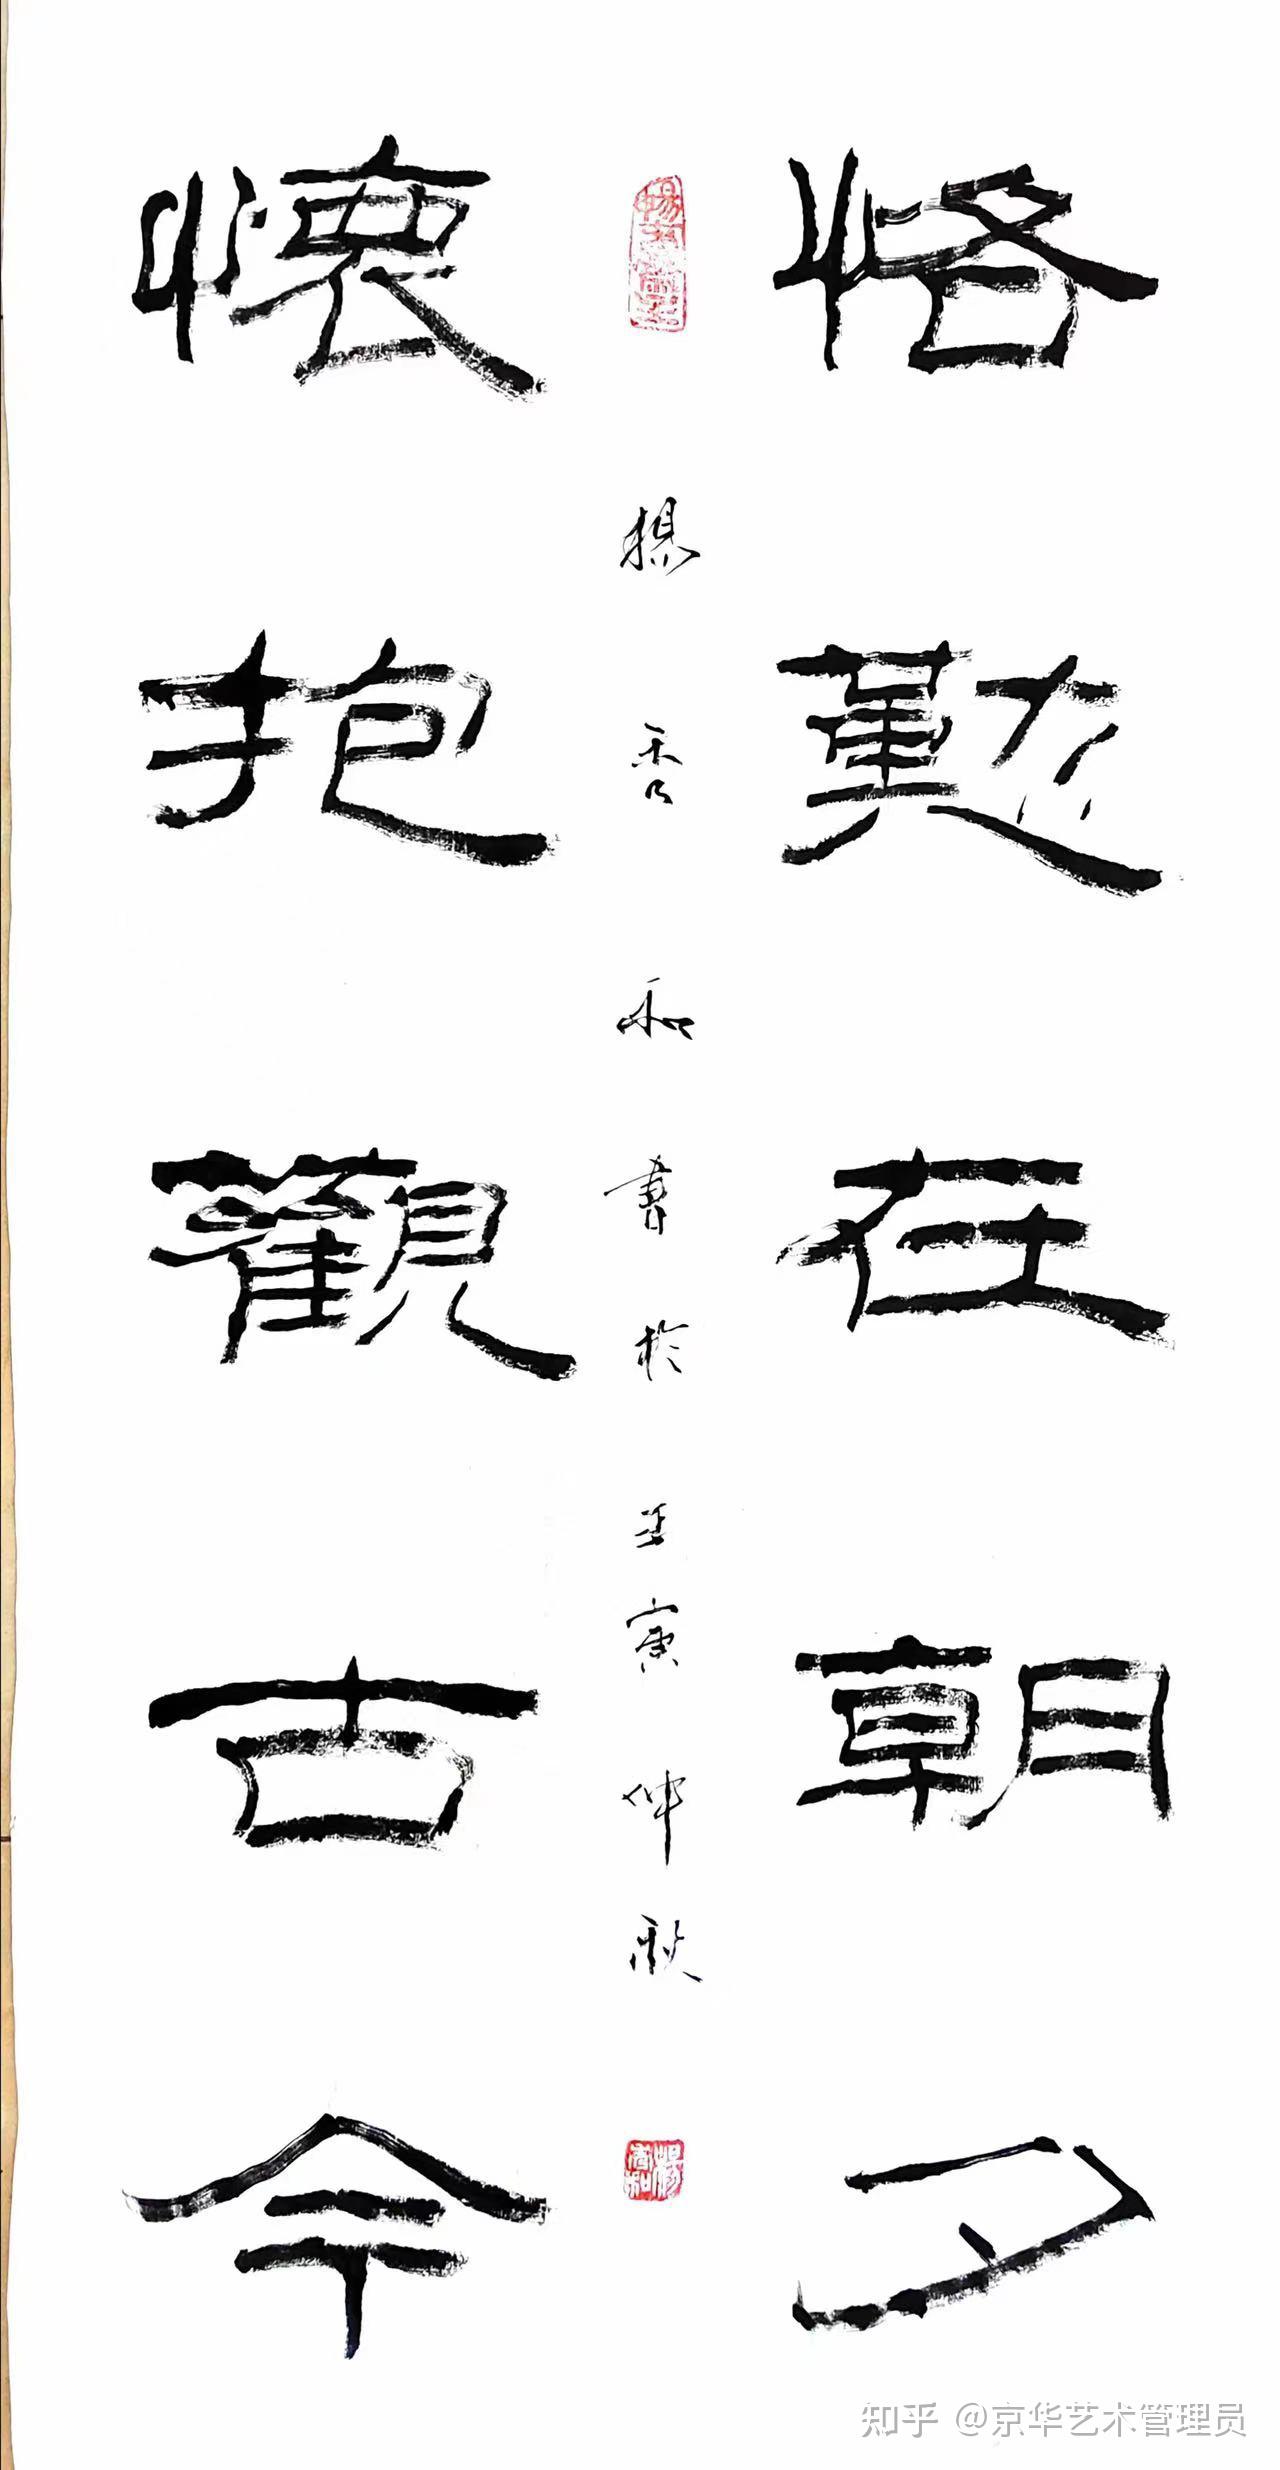 恪懃在朝夕
楊香和書於壬寅仲秋
楊香和
懷抱觀古今
知乎 @京华艺术管理员